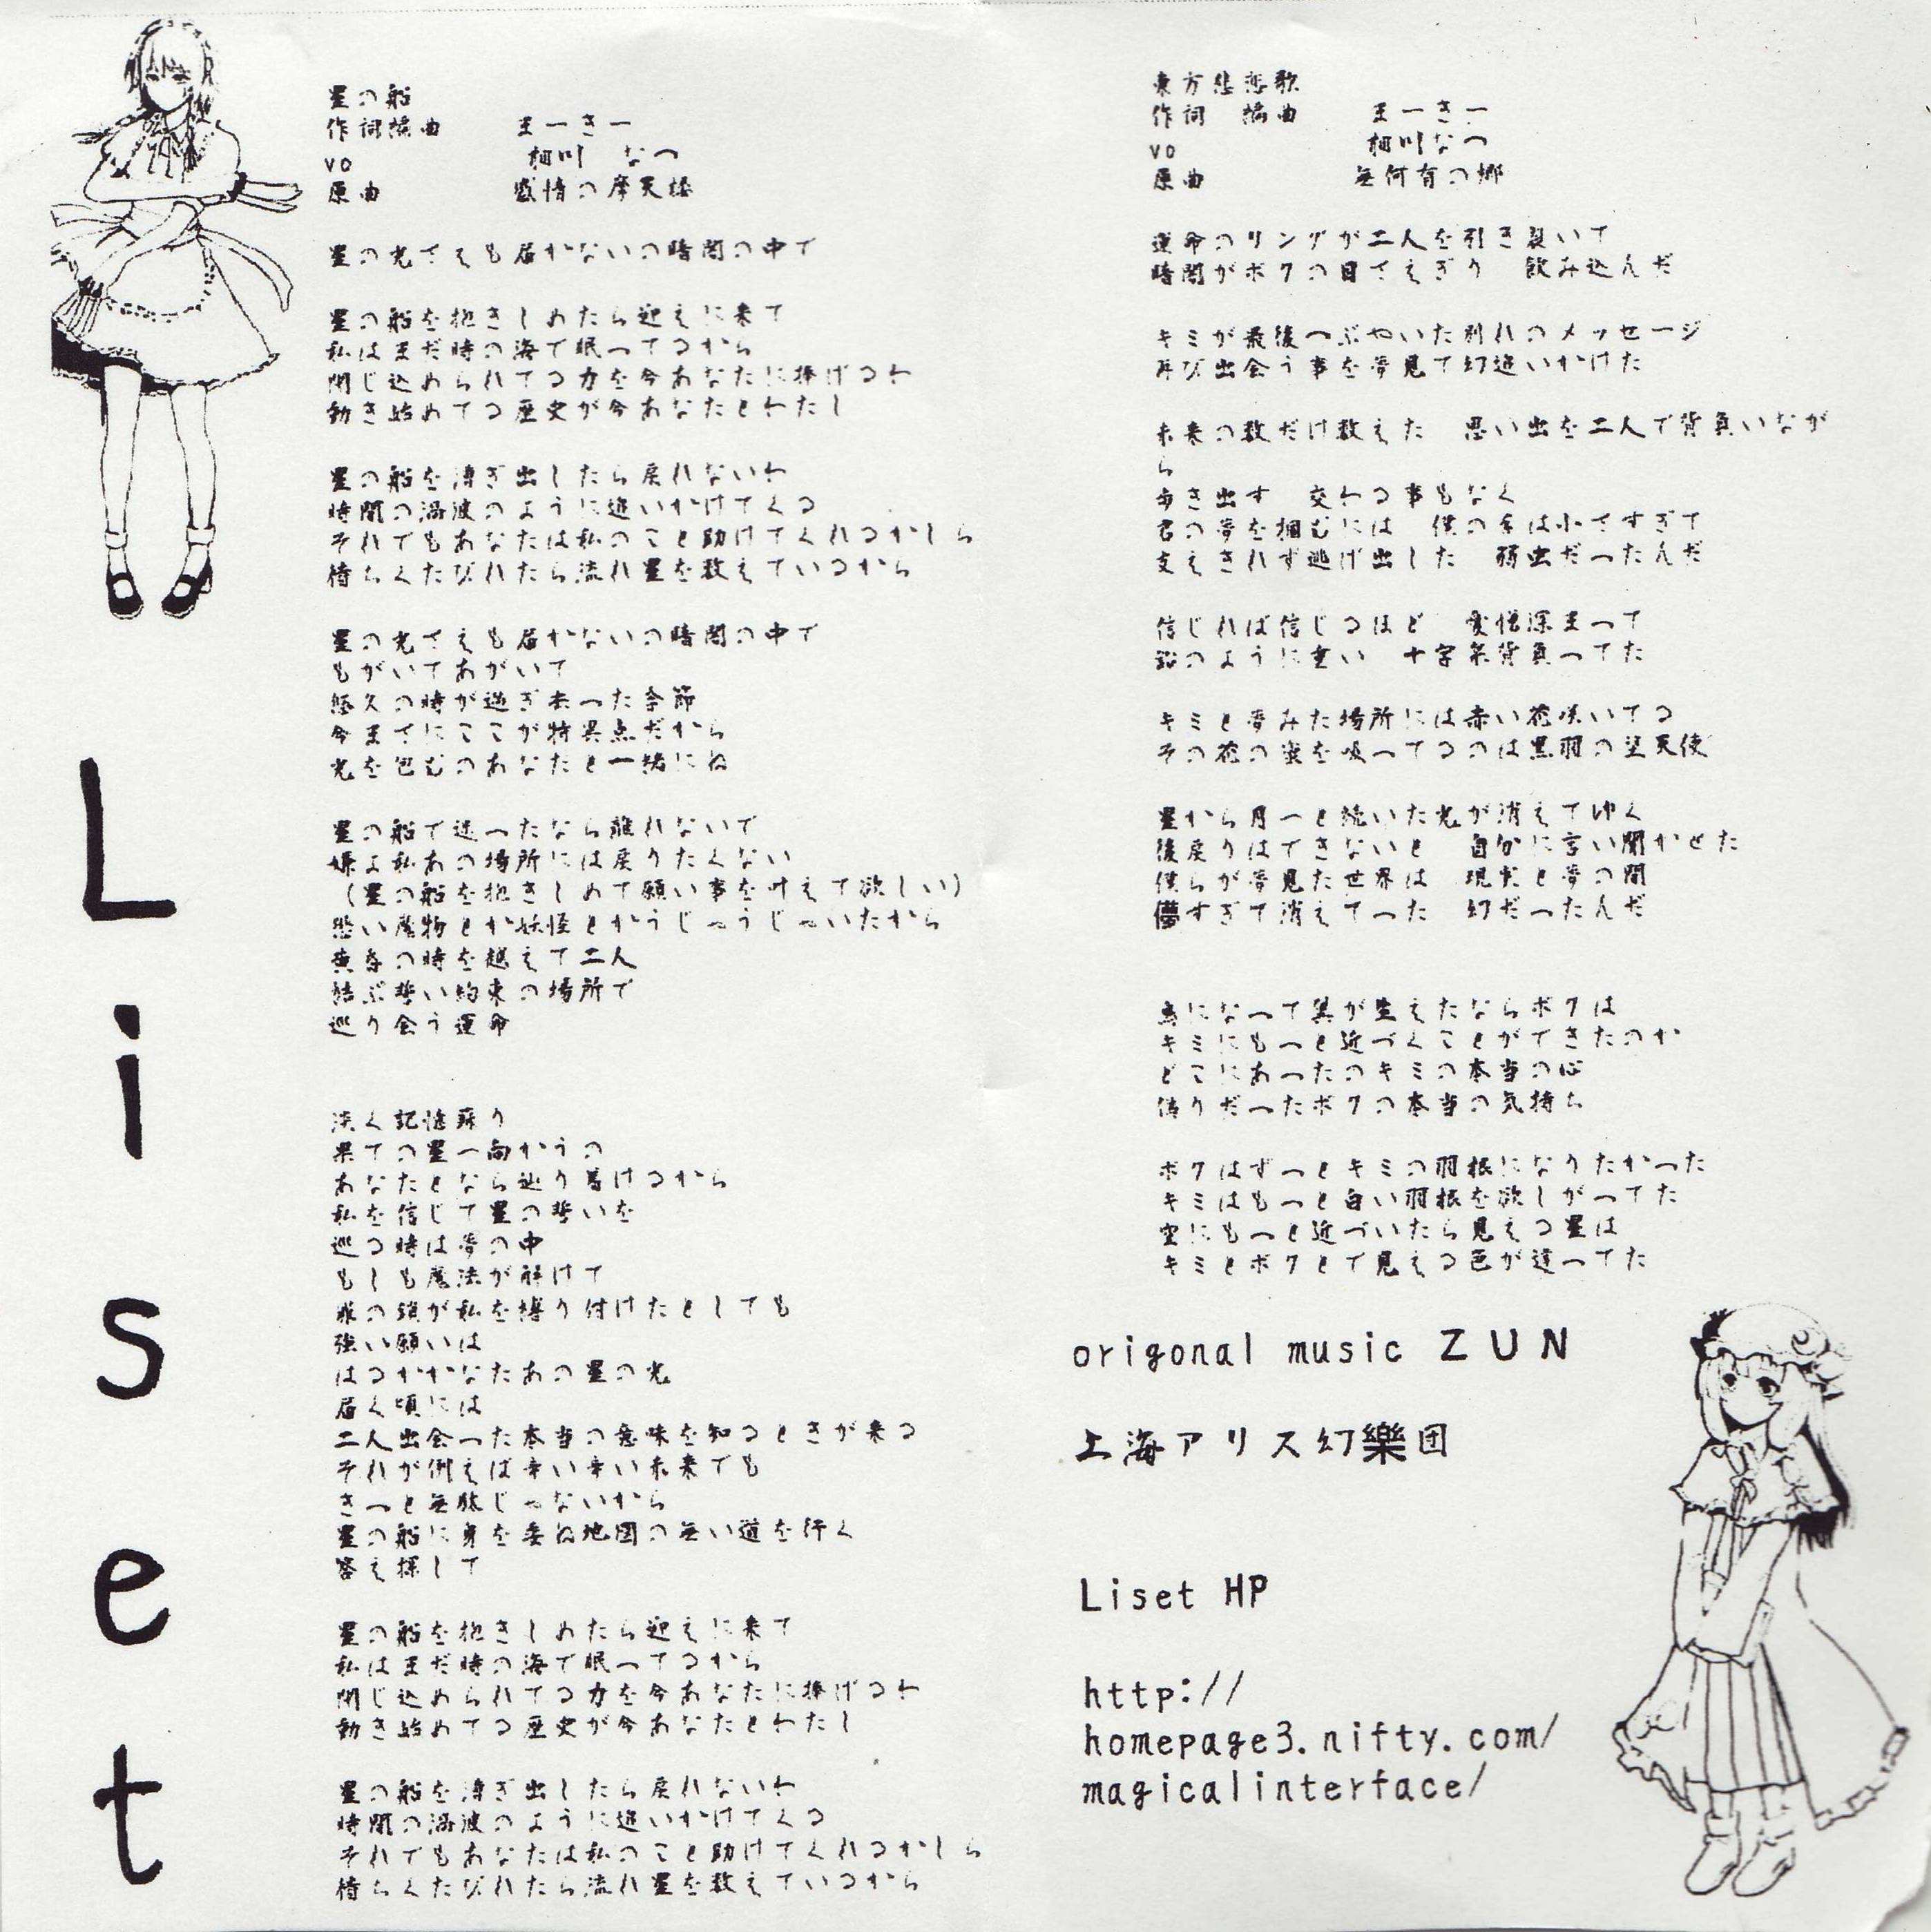 星の船
作詞編曲　まーきー
vo　細川　なつ
原曲　感情の摩天楼
星の光でさえも届かないの暗闇の中で
星の船を抱きしめたら迎えに来て
私はまだ時の海で眠ってるから
閉じ込められてる力を今あなたに捧げるわ
動き始めてる歴史が今あなたとわたし
星の船を漕ぎ出したら戻れないわ
時間の渦波のように追いかけてくる
それでもあなたは私のこと助けてくれるかしら
待ちくたびれたら流れ星を数えているから
星の光でさえも届かないの暗闇の中で
もがいてあがいて
悠久の時が過ぎ去った季節
今までにここが特異点だから
光を包むのあなたと一緒にね
星の船で逢ったなら離れないで
嫌よ私あの場所には戻りたくない
（星の船を抱きしめて願い事を叶えて欲しい）
悪い魔物とか妖怪とかうじゃうじゃいたから
黄昏の時を越えて二人
結ぶ誓い約束の場所で
巡り会う運命
淡く記憶蘇り
果ての星へ向かうの
あなたとなら辿り着けるから
私を信じて星の誓いを
巡る時は夢の中
もしも魔法が解けて
の鎖が私を縛り付けたとしても
強い願いは
はるかかなたあの星の光
届く頃には
二人出会った本当の意味を知るときが来る
それが例えば辛い辛い未来でも
きっと無駄じゃないから
星の船に身を委ね地図の無い道を行く
答え探して
星の船を抱きしめたら迎えに来て
私はまだ時の海で眠ってるから
閉じ込められてる力を今あなたに捧げるわ
動き始めてる歴史が今あなたとわたし
星の船を漕ぎ出したら戻れないわ
時間の渦波のように追いかけてくる
それでもあなたは私のこと助けてくれるかしら
待ちくたびれたら流れ星を数えているから
東方悲恋歌
作詞　編曲　まーきー
vo　細川なつ
原曲　無何有の郷
運命のリングが二人を引き裂いて
暗闇がボクの目さえぎり　飲み込んだ
キミが最後つぶやいた別れのメッセージ
再び出会う事を夢見て幻追いかけた
未来の数だけ数えた　思い出を二人で背負いなが
ら
歩き出す　交わる事もなく
君の夢を掴むには　僕の手は小さすぎて
支えきれず逃げ出した　弱虫だったんだ
信じれば信じるほど　愛憎深まって
鉛のように重い　十字架背負ってた
キミと夢みた場所には赤い花咲いてる
その花の蜜を吸ってるのは黒羽の堕天使
星から月へと続いた光が消えてゆく
後戻りはできないと　自分に言い聞かせた
僕らが夢見た世界は　現実と夢の間
儚すぎて消えてった　幻だったんだ
鳥になって翼が生えたならボクは
キミにもっと近づくことができたのか
どこにあったのキミの本当の心
偽りだったボクの本当の気持ち
ボクはずっとキミの羽根になりたかった
キミはもっと白い羽根を欲しがってた
空にもっと近づいたら見える星は
キミとボクとで見える色が違ってた
origonal music ＺＵＮ
上海アリス幻樂団
Liset HP
http://
homepage3.nifty.com/
magicalinterface/
Liset